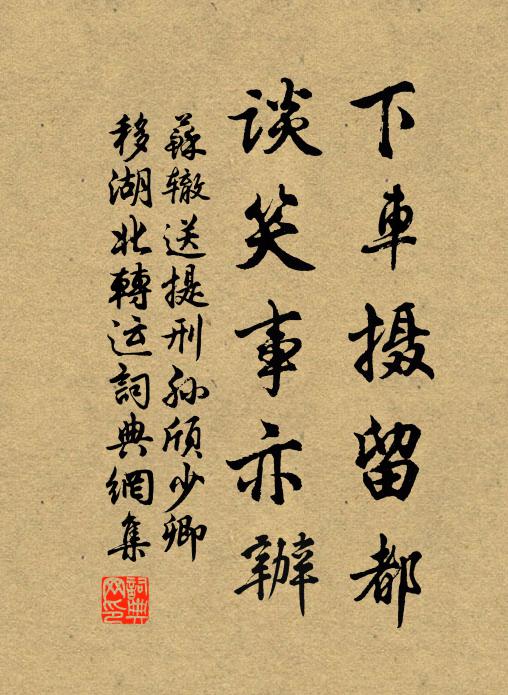 下車摄留都
談笑事亦辦
蘇辙送提刑孙頎少卿
移湖北轉运詞典網集
詞典网印